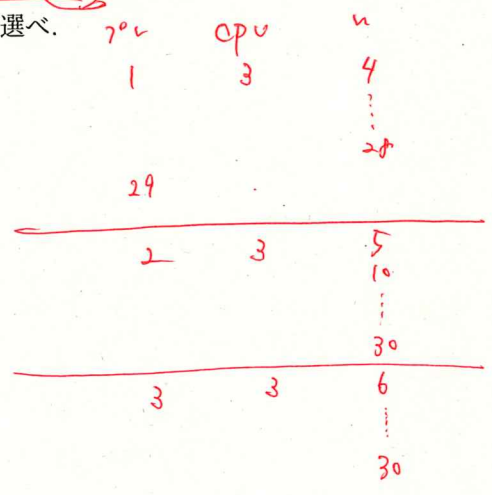 選べ.
プレ cpu n
1 3 4
⋮
28
29
2 3 5
10
⋮
30
3 3 6
⋮
30